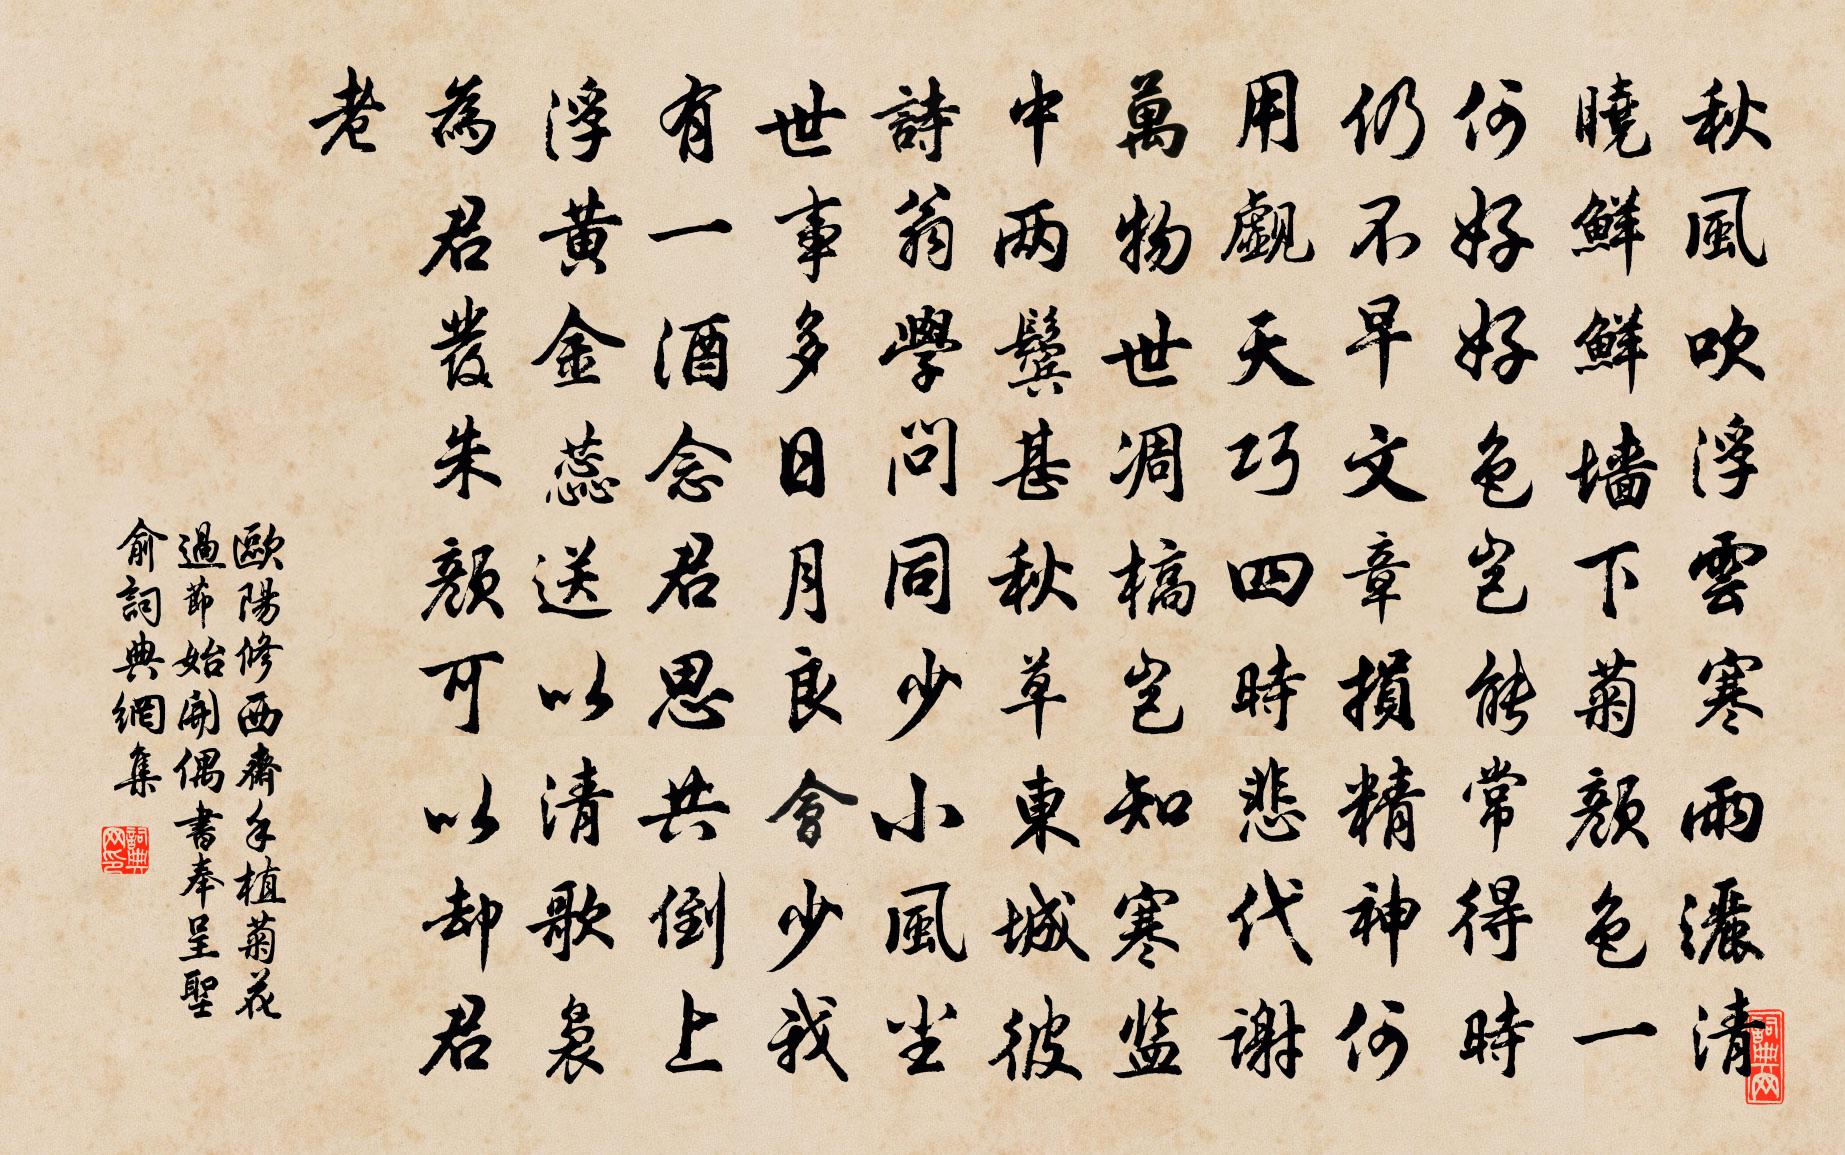 秋風吹浮雲寒雨灑清
曉鮮鮮墻下菊顔色一
何好好色豈能常得時
仍不早文章損精神何
用覷天巧四時悲代謝
萬物世凋槁豈知寒監
中兩鬢甚秋草東城彼
詩翁學問同少小風尘
世事多日月良會少我
有一酒念君思共倒上
浮黄金蕊送以清歌裊
為君發朱顔可以却君
老
歐陽修西齋手植菊花
過節始開偶書奉呈聖
俞詞典網集
詞典网印
詞典网